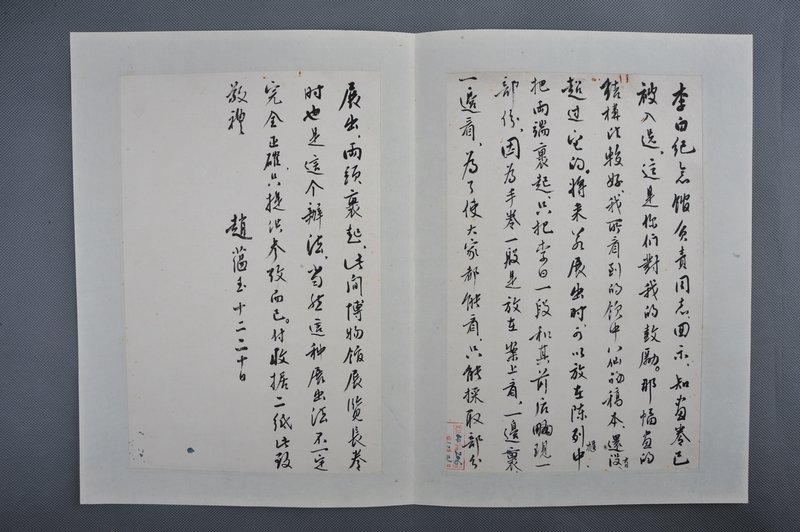 李白纪念馆负责同志：回示，知画卷已
被入选，这是你们对我的鼓励。那幅画的
结构比较好，我所看到的饮中八仙的稿本，还没有
超过它的。将来若展出时，可以放在陈列中
把两端裹起，只把李白一段和其前后略现一
部份，因为手卷一般是放在案上看，一边裹
一边看，为了使大家都能看，只能採取部分
展出，两头裹起，此间博物馆展览長卷
时也是這个辦法，当然這种展出法不一定
完全正確，只提供参攷而已。付收据二纸，此致
敬礼
趙蕴玉十二二十日